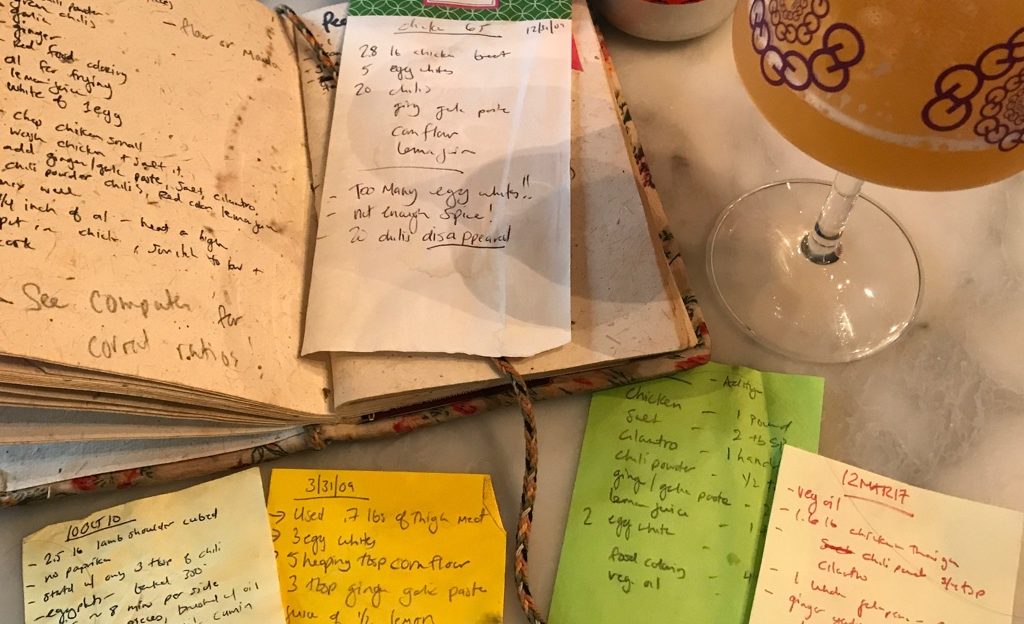 chili
garlic
ginger
Red food coloring
oil for frying
lemon juice
white of 1 egg
- flour or
- chop chicken small
wash chicken + salt it
add ginger/garlic paste, salt, cilantro,
chili powder, chilis, Red color, lemon juice
mix well
1/4 inch of oil - heat on high
put in chick, switch to low +
cook
- See computer for
correct ratios!
chicken 65 12/31/09
28 lb chicken breast
5 egg whites
20 chilis
ging garlic paste
corn flour
lemon juice
- Too Many egg whites!!
- not enough spice!
- 20 chilis disappeared
100ct10
- 2.5 lb lamb shoulder cubed
- no paprika
- started w/ only 3 tbsp of chili
- eggplants - baked 300°
~ 8 mins per side
pieces, brushed w/ oil
cumin
3/31/09
→ Used .7 lbs of Thigh meat
→ 3 egg whites
→ 5 heaping tbsp cornflour
3 tbsp ginger garlic paste
juice of 1/2 lemon
chicken - 1 pound
salt - 2 tbsp
cilantro - 1 hand
chili powder - 1/2
ging/garlic paste -
lemon juice - 1
2 egg white
food coloring - 4
veg oil
12MAR17
- veg oil
- 1.6 lb chicken through
chili powder 3/4 tsp
cilantro
- 1 whole jalapeno
- ginger